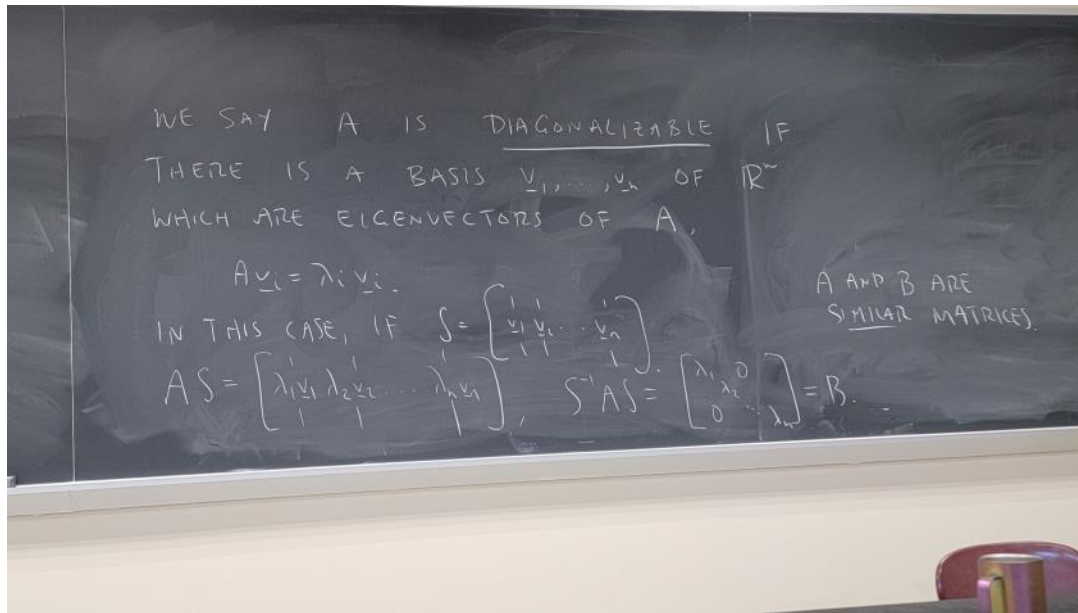 WE SAY A IS DIAGONALIZABLE IF
THERE IS A BASIS v₁, ..., vₙ OF ℝⁿ
WHICH ARE EIGENVECTORS OF A,
Avᵢ = λᵢ vᵢ.
IN THIS CASE, IF S = [v₁ v₂ ... vₙ].
AS = [λ₁v₁ λ₂v₂ ... λₙvₙ], S⁻¹AS = [λ₁ 0 λ₂ 0 ... λₙ] = B.
A AND B ARE
SIMILAR MATRICES.